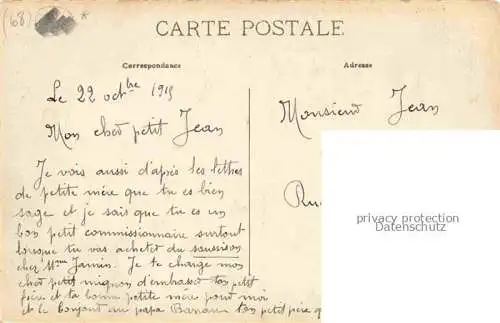 (68) *
CARTE POSTALE
Correspondance
Adresse
Le 22 octbre 1915
Monsieur Jean
Mon cher petit Jean
Je vois aussi d'après les lettres
de petite mère que tu es bien
sage et je sais que tu es un
bon petit commissionnaire surtout
lorsque tu vas acheter du saucisson
chez Mme Jamin. Je te charge mon
cher petit mignon d'embrasser ton petit
frère et ta bonne petite mère pour moi
et le bonjour au papa Banau ton petit père q
Rue
privacy protection
Datenschutz